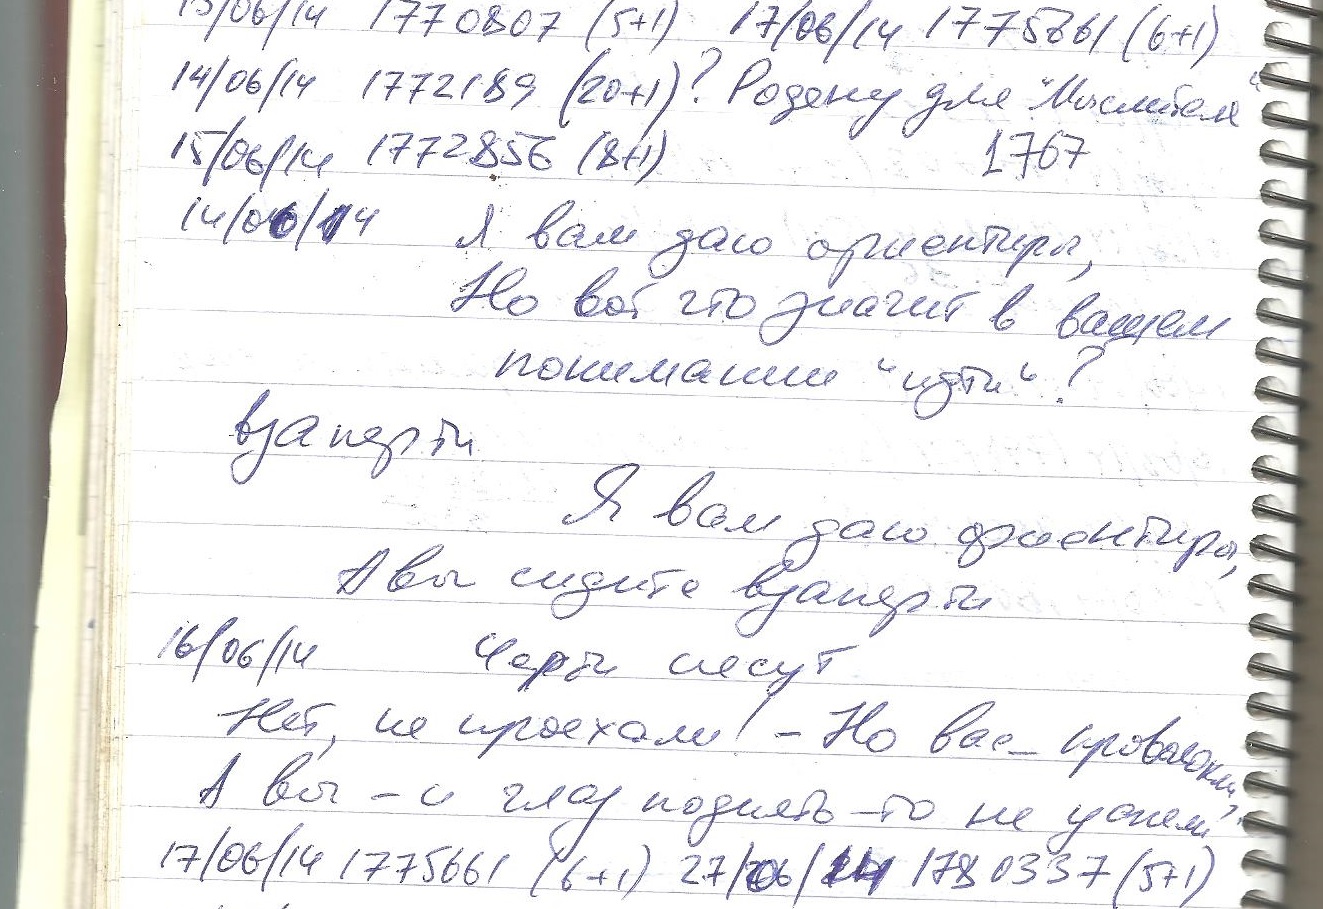 13/06/14 1770807 (5+1) 17/06/14 1775661 (6+1)
14/06/14 1772189 (20+1)? Родену для "Мыслителя"
15/06/14 1772856 (8+1) 1767
14/06/14 Я вам даю ориентиры,
Но вот что значит в вашем
понимании "идти"?
взаперти
Я вам даю ориентиры,
А вы сидите взаперти
16/06/14 Черти несут
Нет, не проехали! – Но вас – проволокли,
А вы – и глаз поднять-то не успели!
17/06/14 1775661 (6+1) 27/06/14 1780337 (5+1)